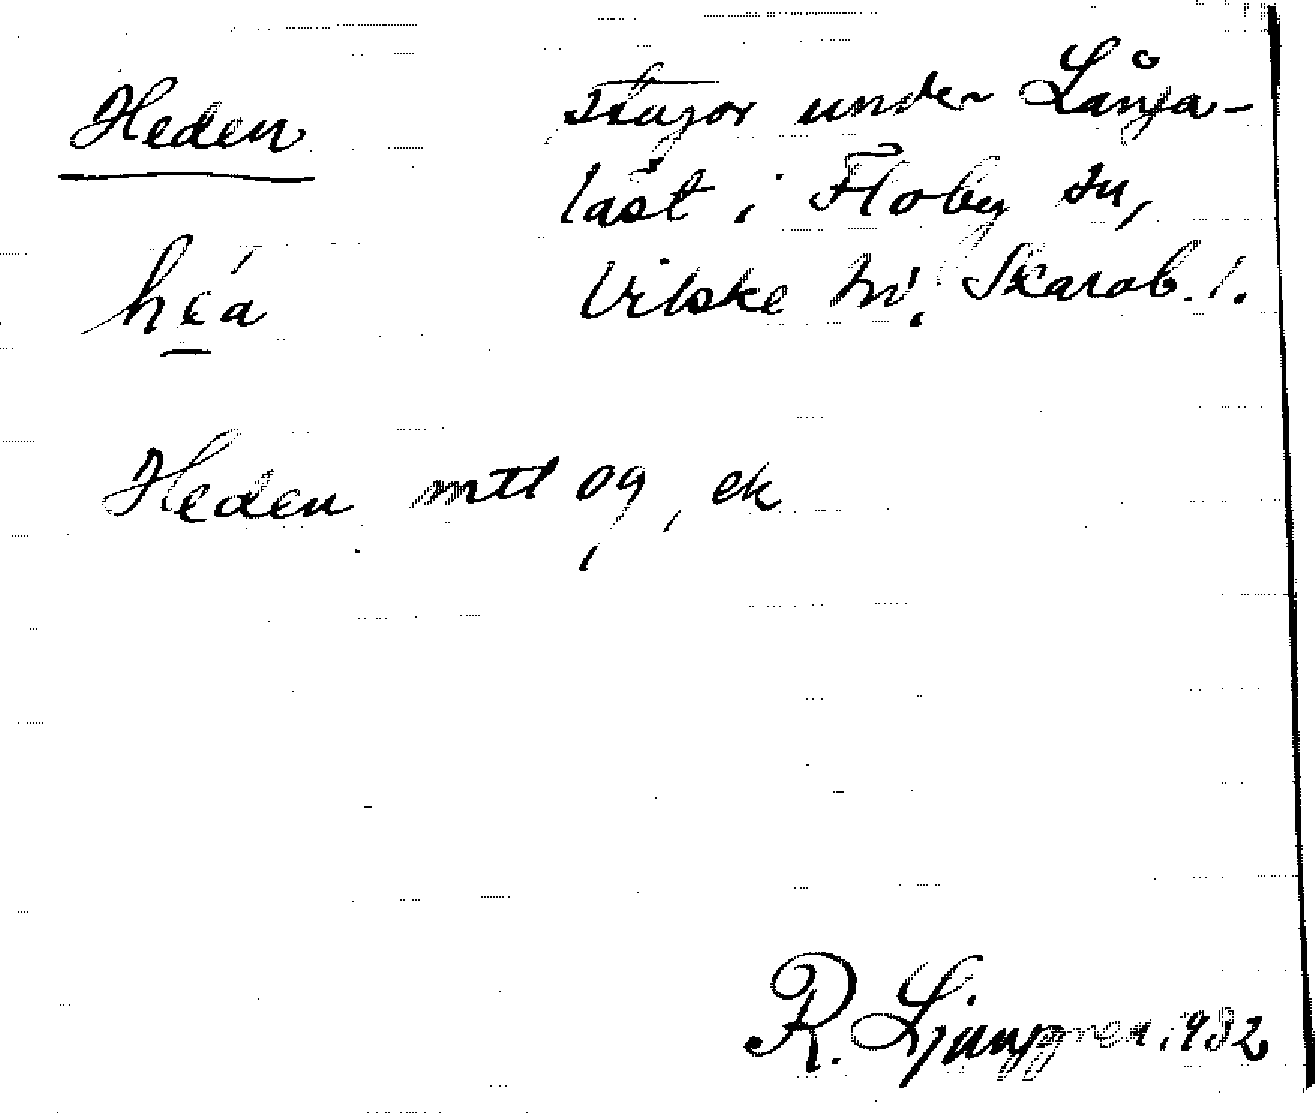 Heden
stugor under Långa-
låst i Floby sn,
Vilske hd. Skarab. l.
héa
Heden mtl og, ek
R. Ljunggren 1932